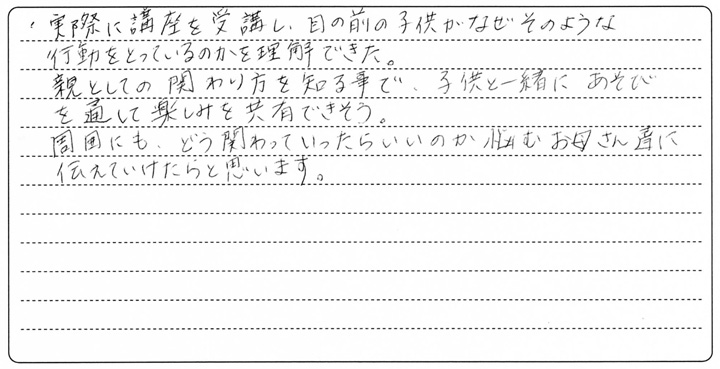 ・実際に講座を受講し、目の前の子供がなぜそのような
行動をとっているのかを理解できた。
親としての関わり方を知る事で、子供と一緒にあそび
を通して楽しみを共有できそう。
周囲にも、どう関わっていったらいいのか悩むお母さん達に
伝えていけたらと思います。